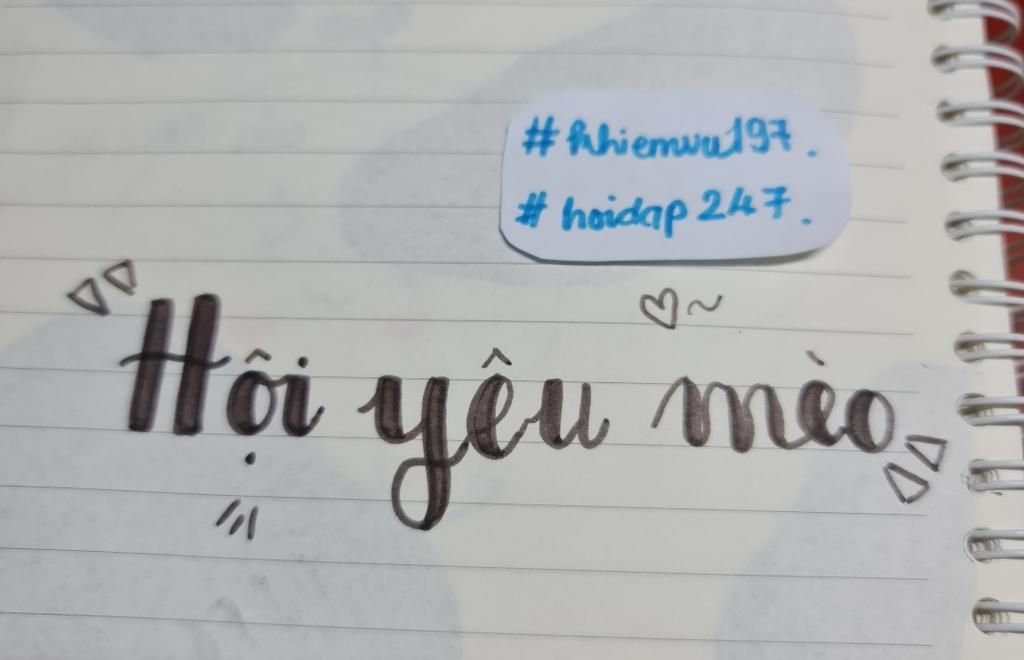 #Nhiemvu197.
#hoidap247.
Hội yêu mèo